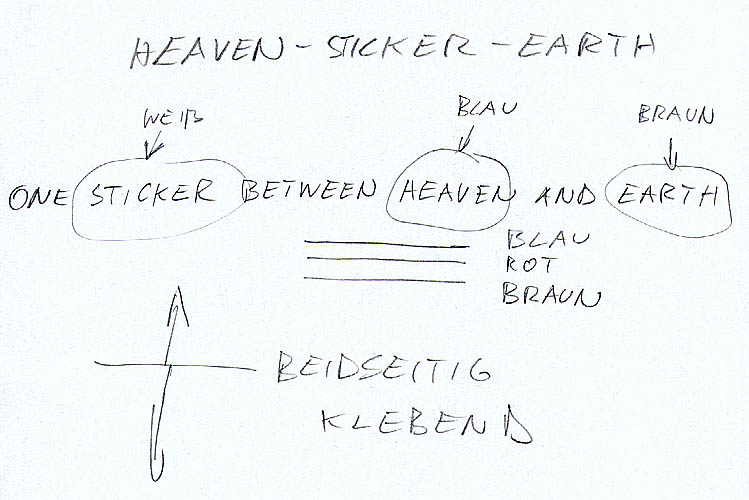 HEAVEN-STICKER-EARTH
WEIß BLAU BRAUN
ONE STICKER BETWEEN HEAVEN AND EARTH
BLAU
ROT
BRAUN
BEIDSEITIG
KLEBEND